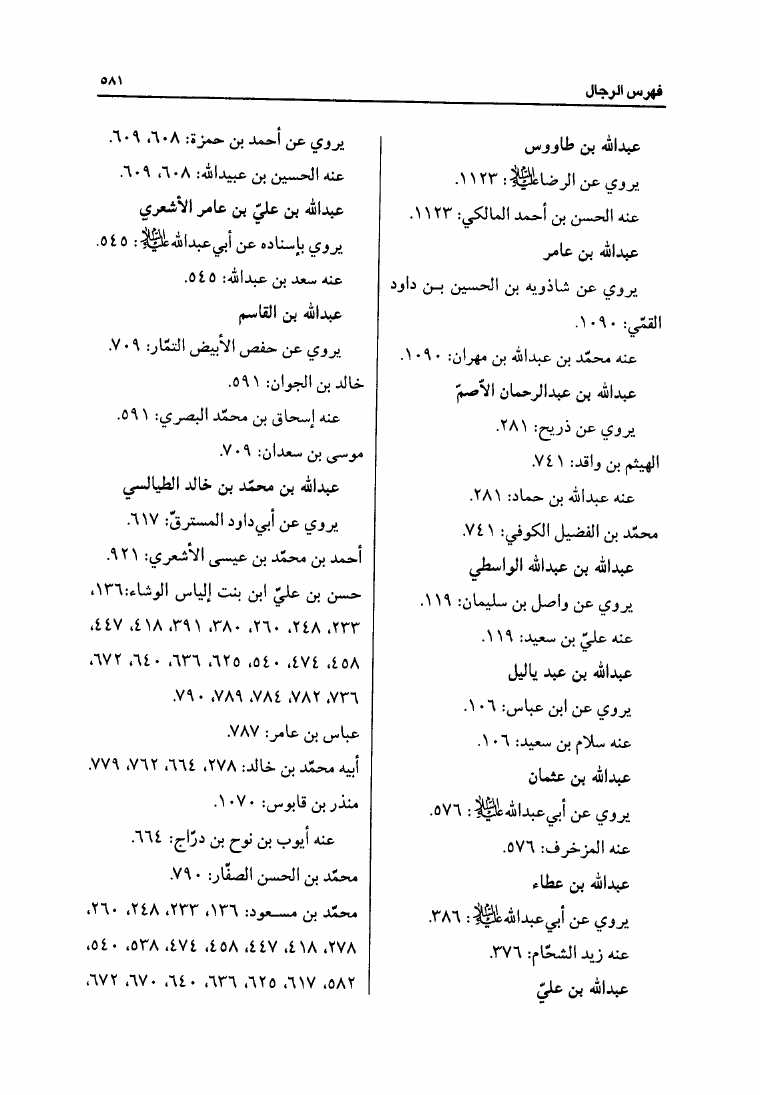 فهرس الرجال
٥٨١
عبدالله بن طاووس
يروي عن الرضا عليه السلام: ١١٢٣.
عنه الحسن بن أحمد المالكي: ١١٢٣.
عبدالله بن عامر
يروي عن شاذويه بن الحسين بـن داود
القمّي: ١٠٩٠.
عنه محمّد بن عبدالله بن مهران: ١٠٩٠.
عبدالله بن عبدالرحمان الأصمّ
يروي عن ذريح: ٢٨١.
الهيثم بن واقد: ٧٤١.
عنه عبدالله بن حماد: ٢٨١.
محمّد بن الفضيل الكوفي: ٧٤١.
عبدالله بن عبدالله الواسطي
يروي عن واصل بن سليمان: ١١٩.
عنه عليّ بن سعيد: ١١٩.
عبدالله بن عبد ياليل
يروي عن ابن عباس: ١٠٦.
عنه سلام بن سعيد: ١٠٦.
عبدالله بن عثمان
يروي عن أبي عبدالله عليه السلام: ٥٧٦.
عنه المزخرف: ٥٧٦.
عبدالله بن عطاء
يروي عن أبي عبدالله عليه السلام: ٣٨٦.
عنه زيد الشحّام: ٣٧٦.
عبدالله بن عليّ
يروي عن أحمد بن حمزة: ٦٠٨، ٦٠٩.
عنه الحسين بن عبيدالله: ٦٠٨، ٦٠٩.
عبدالله بن عليّ بن عامر الأشعري
يروي بإسناده عن أبي عبدالله عليه السلام: ٥٤٥.
عنه سعد بن عبدالله: ٥٤٥.
عبدالله بن القاسم
يروي عن حفص الأبيض التمّار: ٧٠٩.
خالد بن الجوان: ٥٩١.
عنه إسحاق بن محمّد البصري: ٥٩١.
موسى بن سعدان: ٧٠٩.
عبدالله بن محمّد بن خالد الطيالسي
يروي عن أبي داود المسترقّ: ٦١٧.
أحمد بن محمّد بن عيسى الأشعري: ٩٢١.
حسن بن عليّ ابن بنت إلياس الوشاء: ١٣٦،
٢٣٣، ٢٤٨، ٢٦٠، ٣٨٠، ٣٩١، ٤١٨، ٤٤٧،
٤٥٨، ٤٧٤، ٥٤٠، ٦٢٥، ٦٣٦، ٦٤٠، ٦٧٢،
٧٣٦، ٧٨٢، ٧٨٤، ٧٨٩، ٧٩٠.
عباس بن عامر: ٧٨٧.
أبيه محمّد بن خالد: ٢٧٨، ٦٦٤، ٧٦٢، ٧٧٩.
منذر بن قابوس: ١٠٧٠.
عنه أيوب بن نوح بن درّاج: ٦٦٤.
محمّد بن الحسن الصفّار: ٧٩٠.
محمّد بن مسـعود: ١٣٦، ٢٣٣، ٢٤٨، ٢٦٠،
٢٧٨، ٤١٨، ٤٤٧، ٤٥٨، ٤٧٤، ٥٣٨، ٥٤٠،
٥٨٢، ٦١٧، ٦٢٥، ٦٣٦، ٦٤٠، ٦٧٠، ٦٧٢،